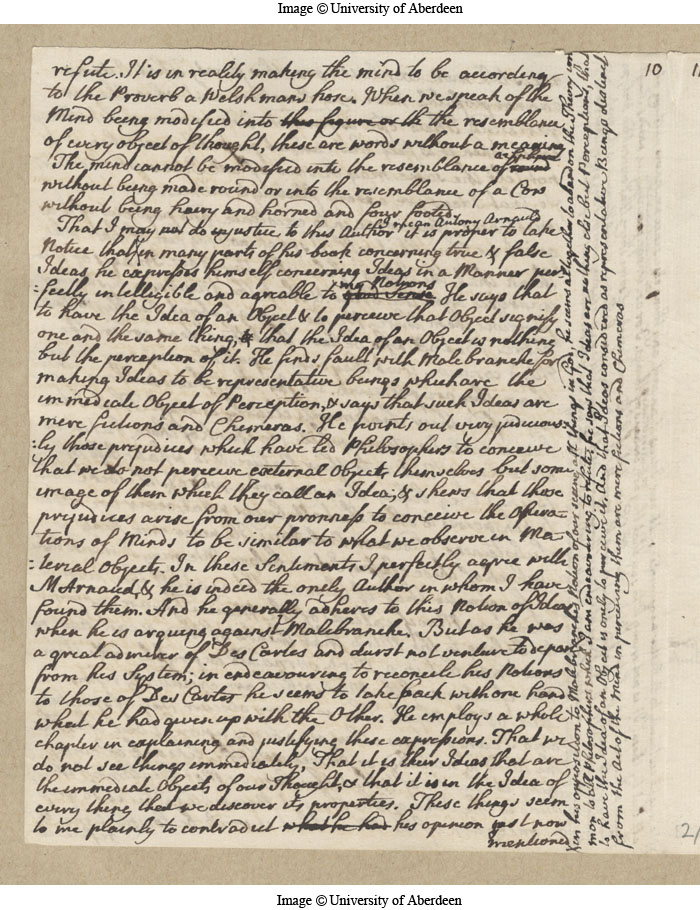 Image © University of Aberdeen
refute. It is in reality making the mind to be according
to the Proverb a Welshmans hose. When we speak of the
Mind being modified into this figure or th the resemblance
of every object of thought, these are words without a meaning
The mind cannot be modified into the resemblance of round
without being made round or into the resemblance of a Cow
without being hairy and horned and four footed
I mean Antony Arnaud
That I may not do injustice to this Author it is proper to take
Notice that in many parts of his book concerning true & false
Ideas he expresses himself concerning Ideas in a Manner per
:fectly intelligible and agreable to good Sense He says that
my Notions
to have the Idea of an Object & to perceive that Object signify
one and the same thing, & that the Idea of an Object is nothing
but the perception of it. He finds fault with Malebranche for
making Ideas to be representative beings which are the
immediate Object of Perception, & says that such Ideas are
mere fictions and Chimeras. He points out very judicious
:ly those prejudices which have led Philosophers to conceive
that we do not perceive external Objects themselves but some
image of them which they call an Idea; & shews that those
prejudices arise from our proness to conceive the Opera
tions of Minds to be similar to what we observe in Ma
:terial Objects. In these Sentiments I perfectly agree with
M Arnaud, & he is indeed the onely Author in whom I have
found them. And he generally adheres to this Notion of Ideas
when he is arguing against Malebranche. But as he was
a great admirer of Des Cartes and durst not venture to depart
from his System; in endeavouring to reconcile his Notions
to those of Des Cartes he seems to take back with one hand
what he had given up with the Other. He employs a whole
chapter in explaining and justifying these expressions. That we
do not see things immediately, That it is their Ideas that are
the immediate Objects of our Thought, & that it is in the Idea of
every thing that we discover its properties. These things seem
to me plainly to contradict what he had his opinion just now
mentioned
in his opposition to Malebranches Notion of our seeing all things in God, he seems altogether to abandon the Theory com
mon to all Philosophers which I am endeavouring to refute, he says that Ideas are nothing else but Perceptions, that
to have the Idea of an Object is only to perceive it, And that Ideas considered as representative Beings distinct
from the Act of the Mind in perceiving them are mere fictions and Chimeras
10
2/
Image © University of Aberdeen